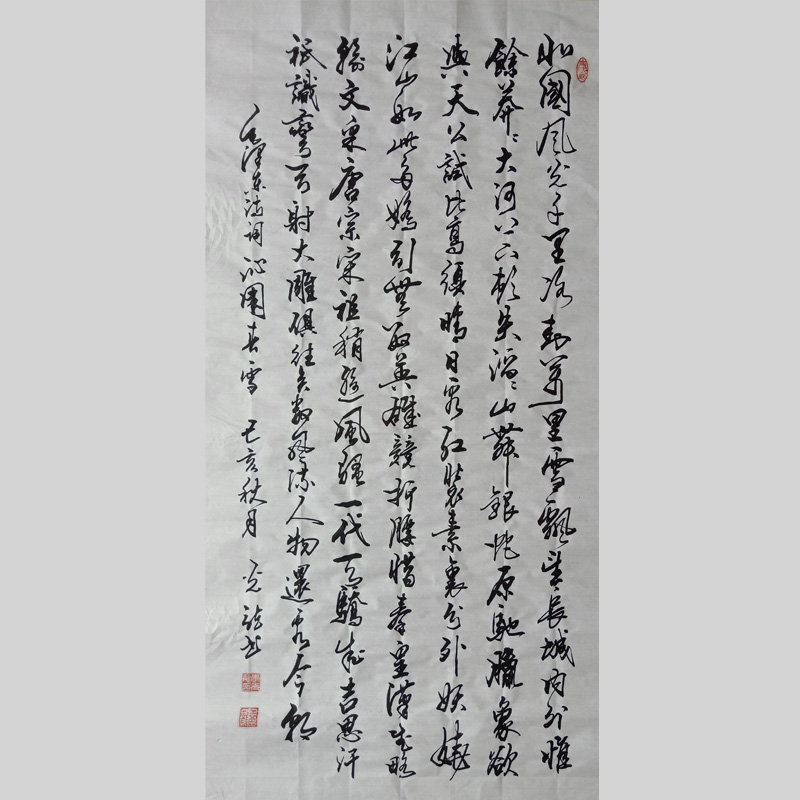 北國風光千里冰封萬里雪飄望長城内外惟
餘莽々大河上下頓失滔々山舞銀蛇原馳臘象欲
與天公試比高須晴日看紅裝素裹分外妖嬈
江山如此多嬌引無數英雄競折腰惜秦皇漢武略
輸文采唐宗宋祖稍遜風騷一代天驕成吉思汗
祇識彎弓射大雕俱往矣數風流人物還看今朝
毛澤東詩詞沁園春雪 己亥秋月